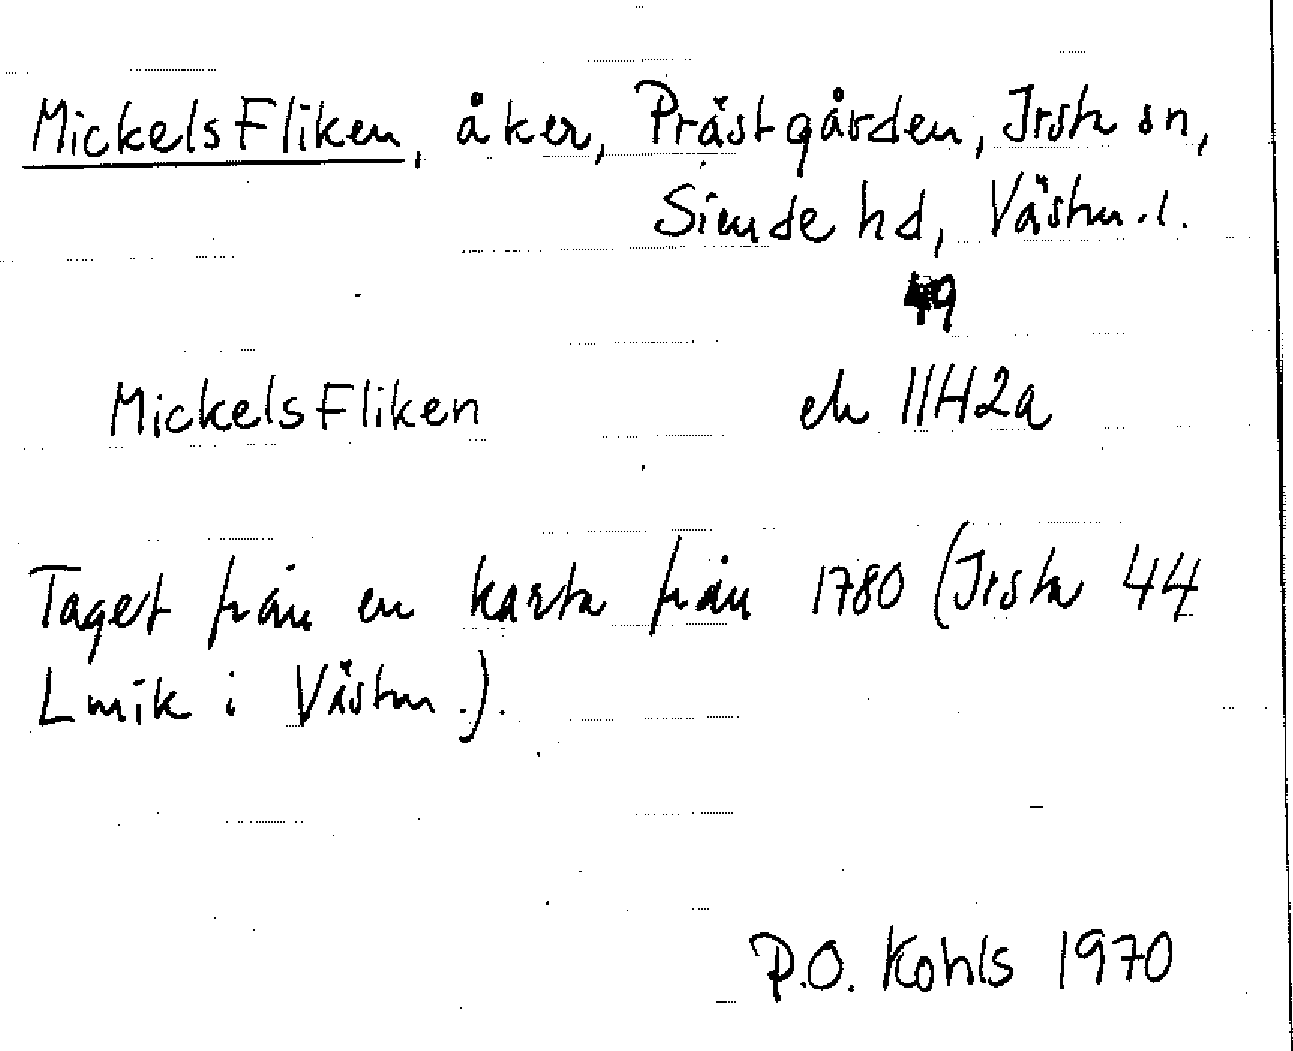 MickelsFliken, åker, Prästgården, Irsta sn,
Siende hd, Västm.l.
49
MickelsFliken ek 11H2a
Taget från en karta från 1780 (Irsta 44
Lmik i Västm.).
P.O. Kohls 1970